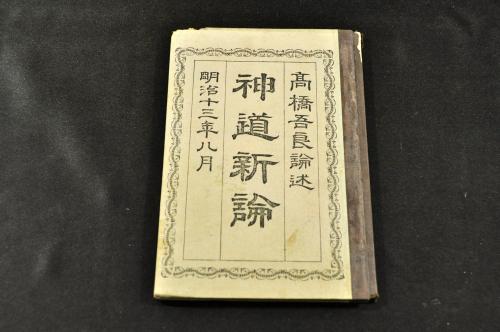 高橋吾良論述
神道新論
明治十三年八月